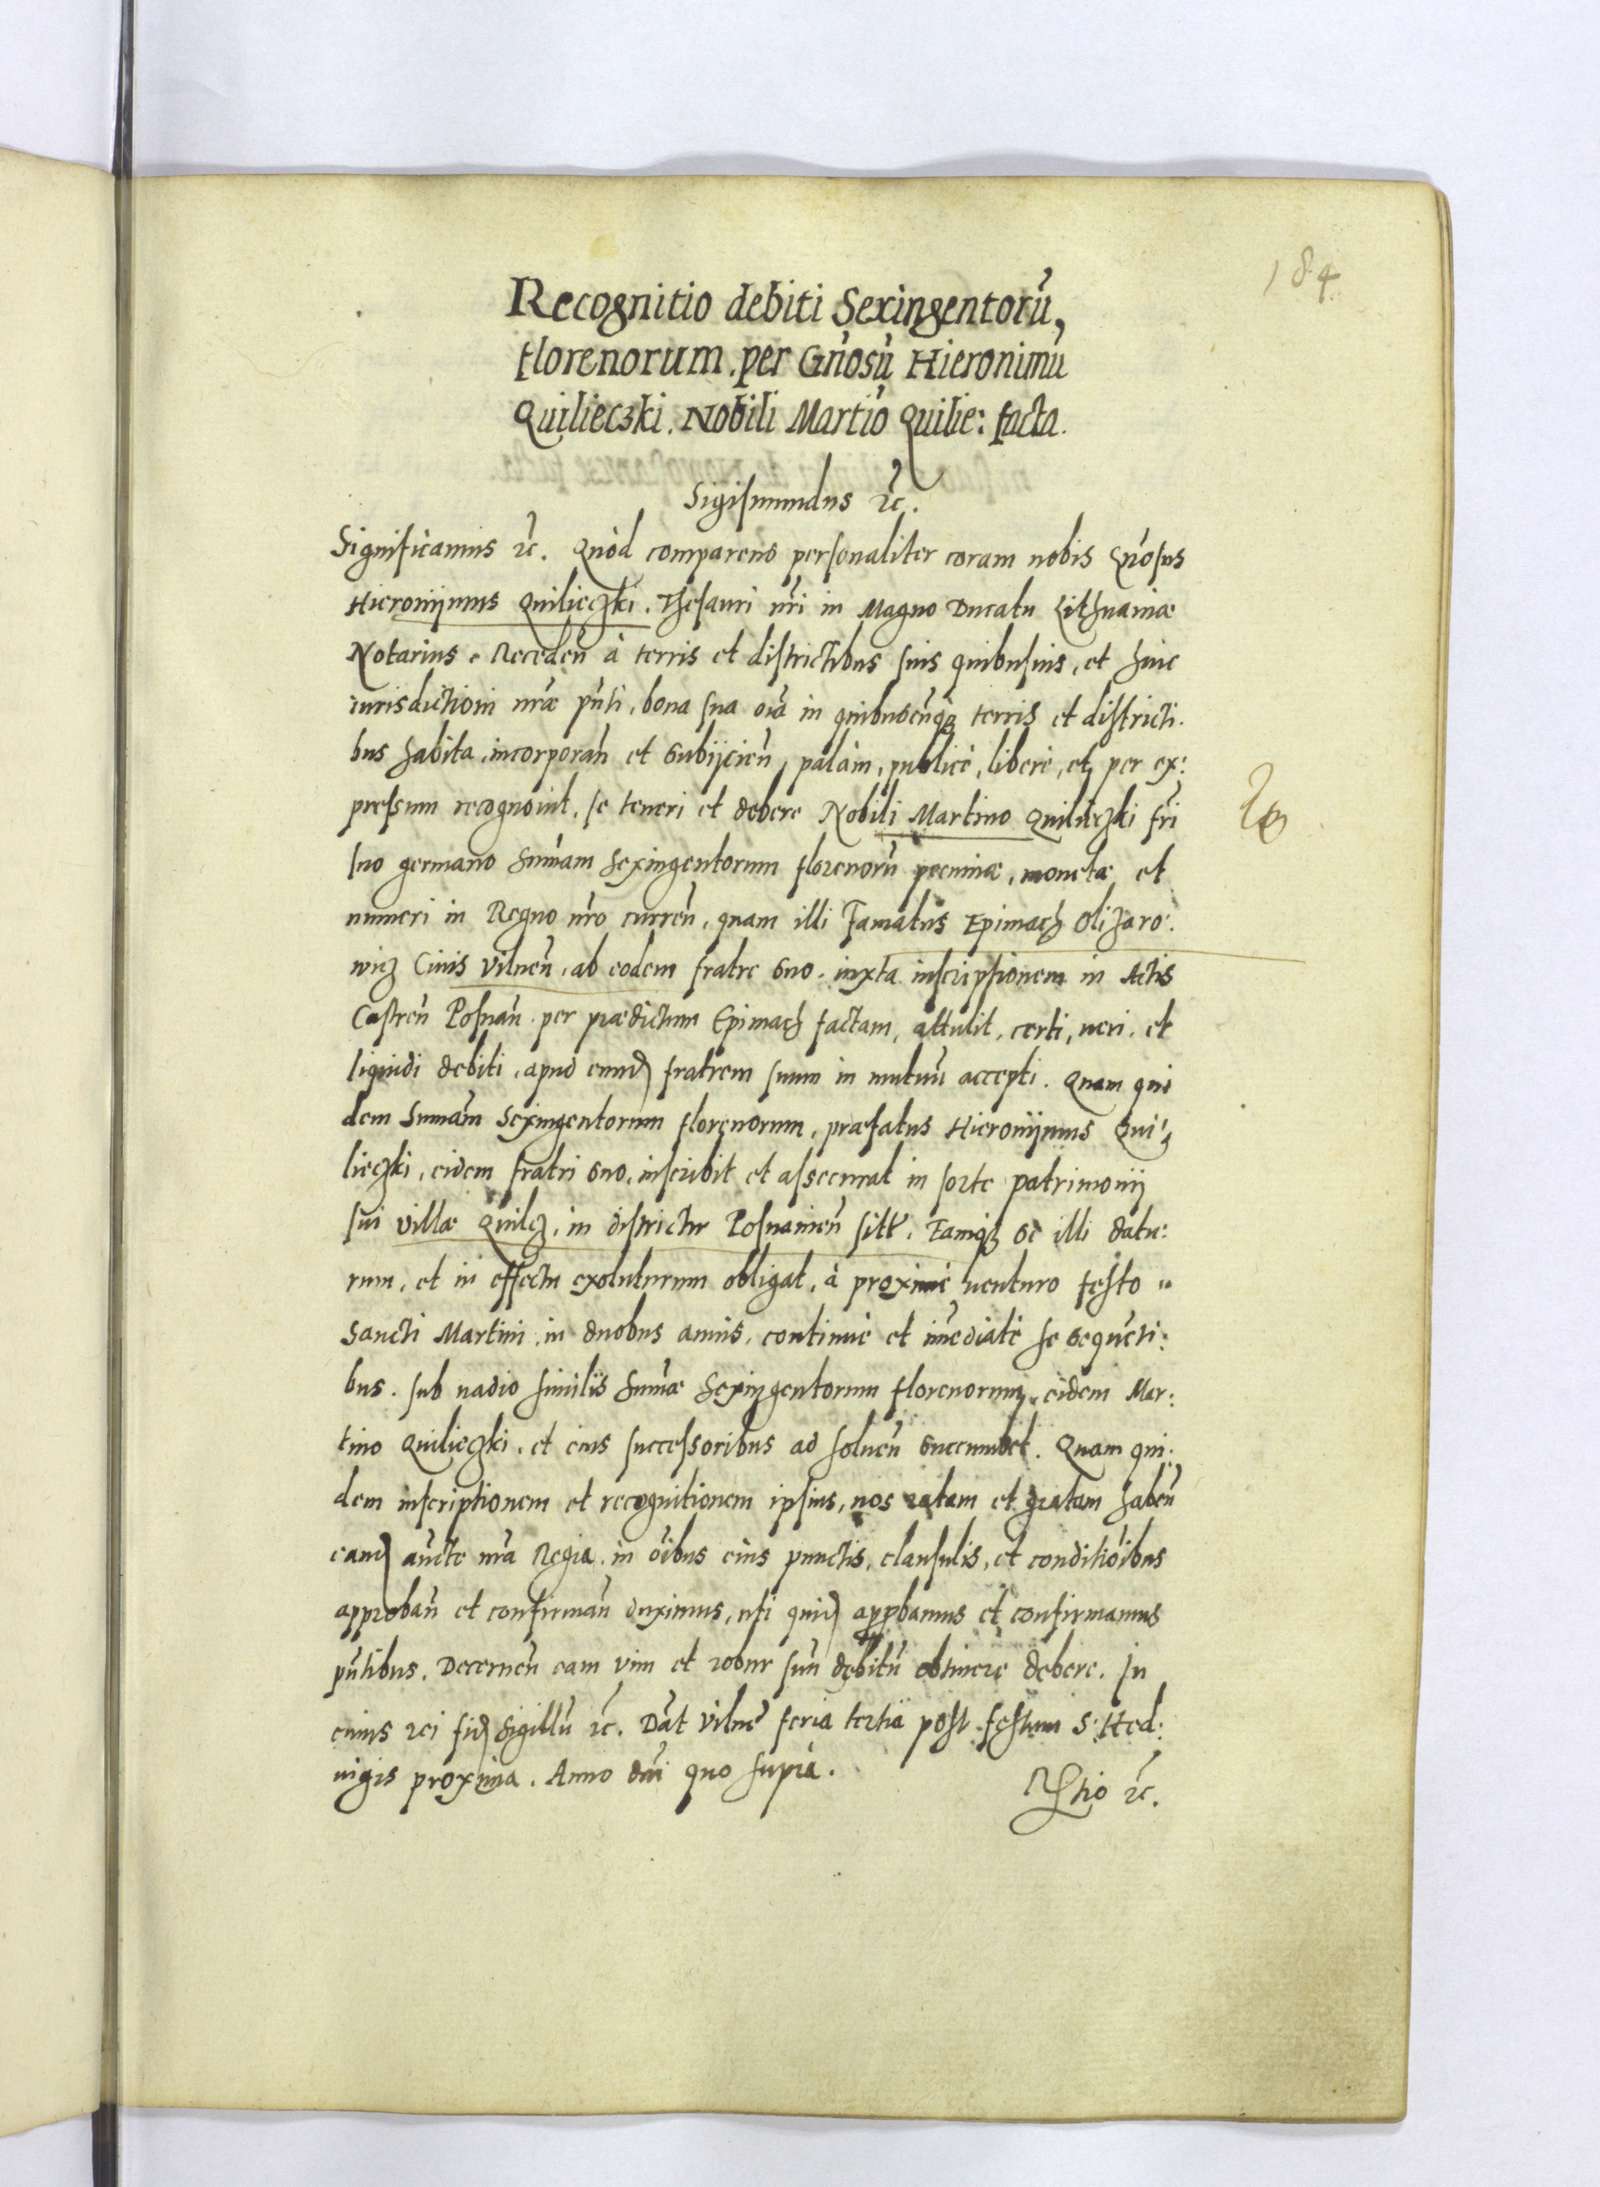 184
Recognitio debiti Sexingentorū,
florenorum. per Gn̄osū Hieronimū
Quilieczki. Nobili Martiō Quilie: facta.
Sigismundus ꝛc̄.
Significamus ꝛc̄. Quòd comparens personaliter coram nobis Gn̄osus
Hieronijmus Quilieczki. Thesauri nr̄i in Magno Ducatu Lithuaniæ
Notarius. Receden̄ à terris et districtibus suis quibusuis, et huic
iurisdictioni nr̄æ pn̄ti, bona sua oīa in quibuscunqȝ terris et districti.
bus habita, incorporan̄ et subijcien̄, palàm, publicè, liberè, et per ex:
pressum recognouit, se teneri et debere Nobili Martino Quilieczki fr̄i
suo germano sum̄am sexingentorum florenorū pecuniæ, monetæ et
numeri in Regno nr̄o curren̄, quam illi Famatus Epimach Olizaro:
wicz Ciuis Vilnen̄, ab eodem fratre suo. iuxta inscriptionem in Actis
Castren̄ Posnan̄ per prædictum Epimach factam, attulit, certi, ueri, et
liquidi debiti, apud eund fratrem suum in mutuū accepti. Quam qui
dem Summam Sexingentorum florenorum, præfatus Hieronijmus Qui:
lieczki, eidem fratri suo, inscribit et assecurat in sorte patrimonij
sui villæ Quilcz, in districtu Posnanien̄ sitæ. Eamqȝ se illi datu:
rum, et in effectu exoluturum obligat, à proximè uenturo festo
Sancti Martini, in duobus annis, continuè et im̄ediatè se sequēti:
bus. sub uadio similis sum̄æ sexingentorum florenorum, eidem Mar:
tino Quilieczki, et eius successoribus ad soluen̄ succumbet. Quam qui:
dem inscriptionem et recognitionem ipsius, nos ratam et gratam haben̄
eand auc̄te nr̄a Regia, in oībus eius punctis, clausulis, et conditiōibus
approban̄ et confirman̄ duximus, uti quid approbamus et confirmamus
pn̄tibus. Decernen̄ eam vim et robur suū debitū obtinere debere. In
cuius rei fid sigillū ꝛc̄. Dat̄ Vilnæ feria tertia post festum S: Hed:
uigis proxima. Anno dn̄i quo supra.
Rtio ꝛc̄.